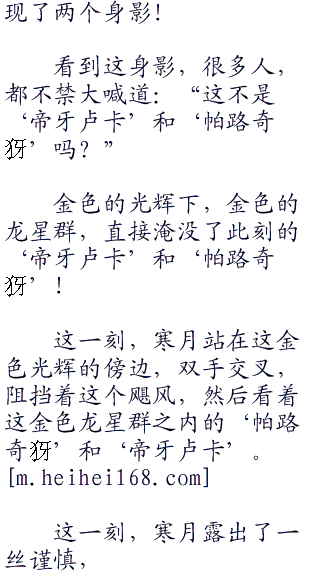 现了两个身影！
看到这身影，很多人，
都不禁大喊道：“这不是
‘帝牙卢卡’和‘帕路奇
犽’吗？”
金色的光辉下，金色的
龙星群，直接淹没了此刻的
‘帝牙卢卡’和‘帕路奇
犽’！
这一刻，寒月站在这金
色光辉的傍边，双手交叉，
阻挡着这个飓风，然后看着
这金色龙星群之内的‘帕路
奇犽’和‘帝牙卢卡’。
[m.heihei168.com]
这一刻，寒月露出了一
丝谨慎，